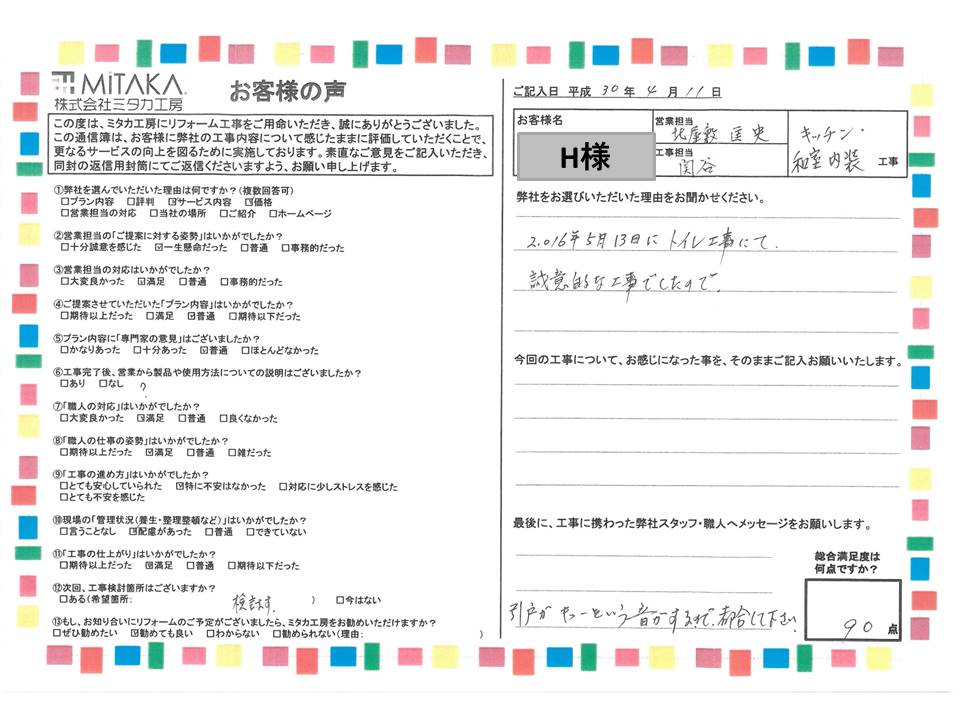 MiTAKA
株式会社ミタカ工房
お客様の声
この度は、ミタカ工房にリフォーム工事をご用命いただき、誠にありがとうございました。
この通信簿は、お客様に弊社の工事内容について感じたままに評価していただくことで、
更なるサービスの向上を図るために実施しております。素直なご意見をご記入いただき、
同封の返信用封筒にてご返信くださいますよう、お願い申し上げます。
①弊社を選んでいただいた理由は何ですか?(複数回答可)
□プラン内容 □評判 ☑サービス内容 ☑価格
□営業担当の対応 □当社の場所 □ご紹介 □ホームページ
②営業担当の「ご提案に対する姿勢」はいかがでしたか?
□十分誠意を感じた ☑一生懸命だった □普通 □事務的だった
③営業担当の対応はいかがでしたか?
□大変良かった ☑満足 □普通 □事務的だった
④ご提案させていただいた「プラン内容」はいかがでしたか?
□期待以上だった □満足 ☑普通 □期待以下だった
⑤プラン内容に「専門家の意見」はございましたか?
□かなりあった □十分あった ☑普通 □ほとんどなかった
⑥工事完了後、営業から製品や使用方法についての説明はございましたか?
□あり □なし ?
⑦「職人の対応」はいかがでしたか?
□大変良かった ☑満足 □普通 □良くなかった
⑧「職人の仕事の姿勢」はいかがでしたか?
□期待以上だった ☑満足 □普通 □雑だった
⑨「工事の進め方」はいかがでしたか?
□とても安心していられた ☑特に不安はなかった □対応に少しストレスを感じた
□とても不安を感じた
⑩現場の「管理状況(養生・整理整頓など)」はいかがでしたか?
□言うことなし ☑配慮があった □普通 □できていない
⑪「工事の仕上がり」はいかがでしたか?
□期待以上だった ☑満足 □普通 □期待以下だった
⑫次回、工事検討箇所はございますか?
□ある(希望箇所: 検討中す. ) □今はない
⑬もし、お知り合いにリフォームのご予定がございましたら、ミタカ工房をお勧めいただけますか?
□ぜひ勧めたい ☑勧めても良い □わからない □勧められない(理由: )
ご記入日 平成 30 年 4 月 11 日
お客様名
H様
営業担当
北屋敷 匡史
工事担当
関谷
キッチン・
和室内装 工事
弊社をお選びいただいた理由をお聞かせください。
2.016年5月13日に トイレ工事にて.
誠意的な工事でしたので.
今回の工事について、お感じになった事を、そのままご記入お願いいたします。
最後に、工事に携わった弊社スタッフ・職人へメッセージをお願いします。
引戸が という音がするので、都合して下さい.
総合満足度は
何点ですか?
90 点